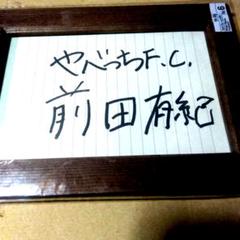 やべっちF.C.
前田有紀